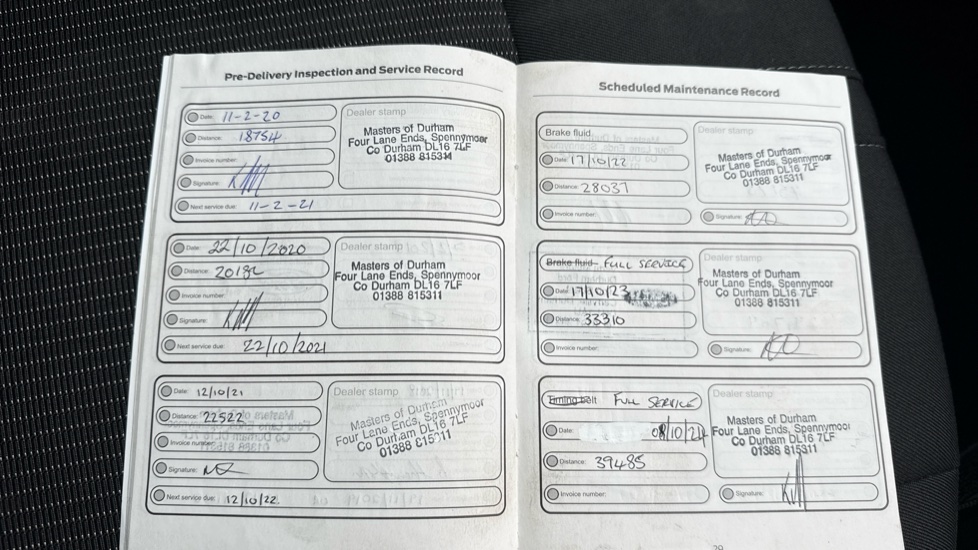 Pre-Delivery Inspection and Service Record
Date: 11-2-20
Distance: 18754
Invoice number:
Signature:
Next service due: 11-2-21
Dealer stamp
Masters of Durham
Four Lane Ends, Spennymoor
Co Durham DL16 7LF
01388 815311
Date: 22/10/2020
Distance:
Invoice number:
Signature:
Next service due: 22/10/2021
Dealer stamp
Masters of Durham
Four Lane Ends, Spennymoor
Co Durham DL16 7LF
01388 815311
Date: 12/10/21
Distance: 22522
Invoice number:
Signature:
Next service due: 12/10/22
Dealer stamp
Masters of Durham
Four Lane Ends, Spennymoor
Co Durham DL16 7LF
01388 815311
Scheduled Maintenance Record
Brake fluid
Date: 17/10/22
Distance: 28037
Invoice number:
Signature:
Dealer stamp
Masters of Durham
Four Lane Ends, Spennymoor
Co Durham DL16 7LF
01388 815311
Brake fluid FULL SERVICE
Date: 17/10/23
Distance: 33310
Invoice number:
Signature:
Dealer stamp
Masters of Durham
Four Lane Ends, Spennymoor
Co Durham DL16 7LF
01388 815311
Timing belt FULL SERVICE
Date: 08/10/24
Distance: 39485
Invoice number:
Signature:
Dealer stamp
Masters of Durham
Four Lane Ends, Spennymoor
Co Durham DL16 7LF
01388 815311
29